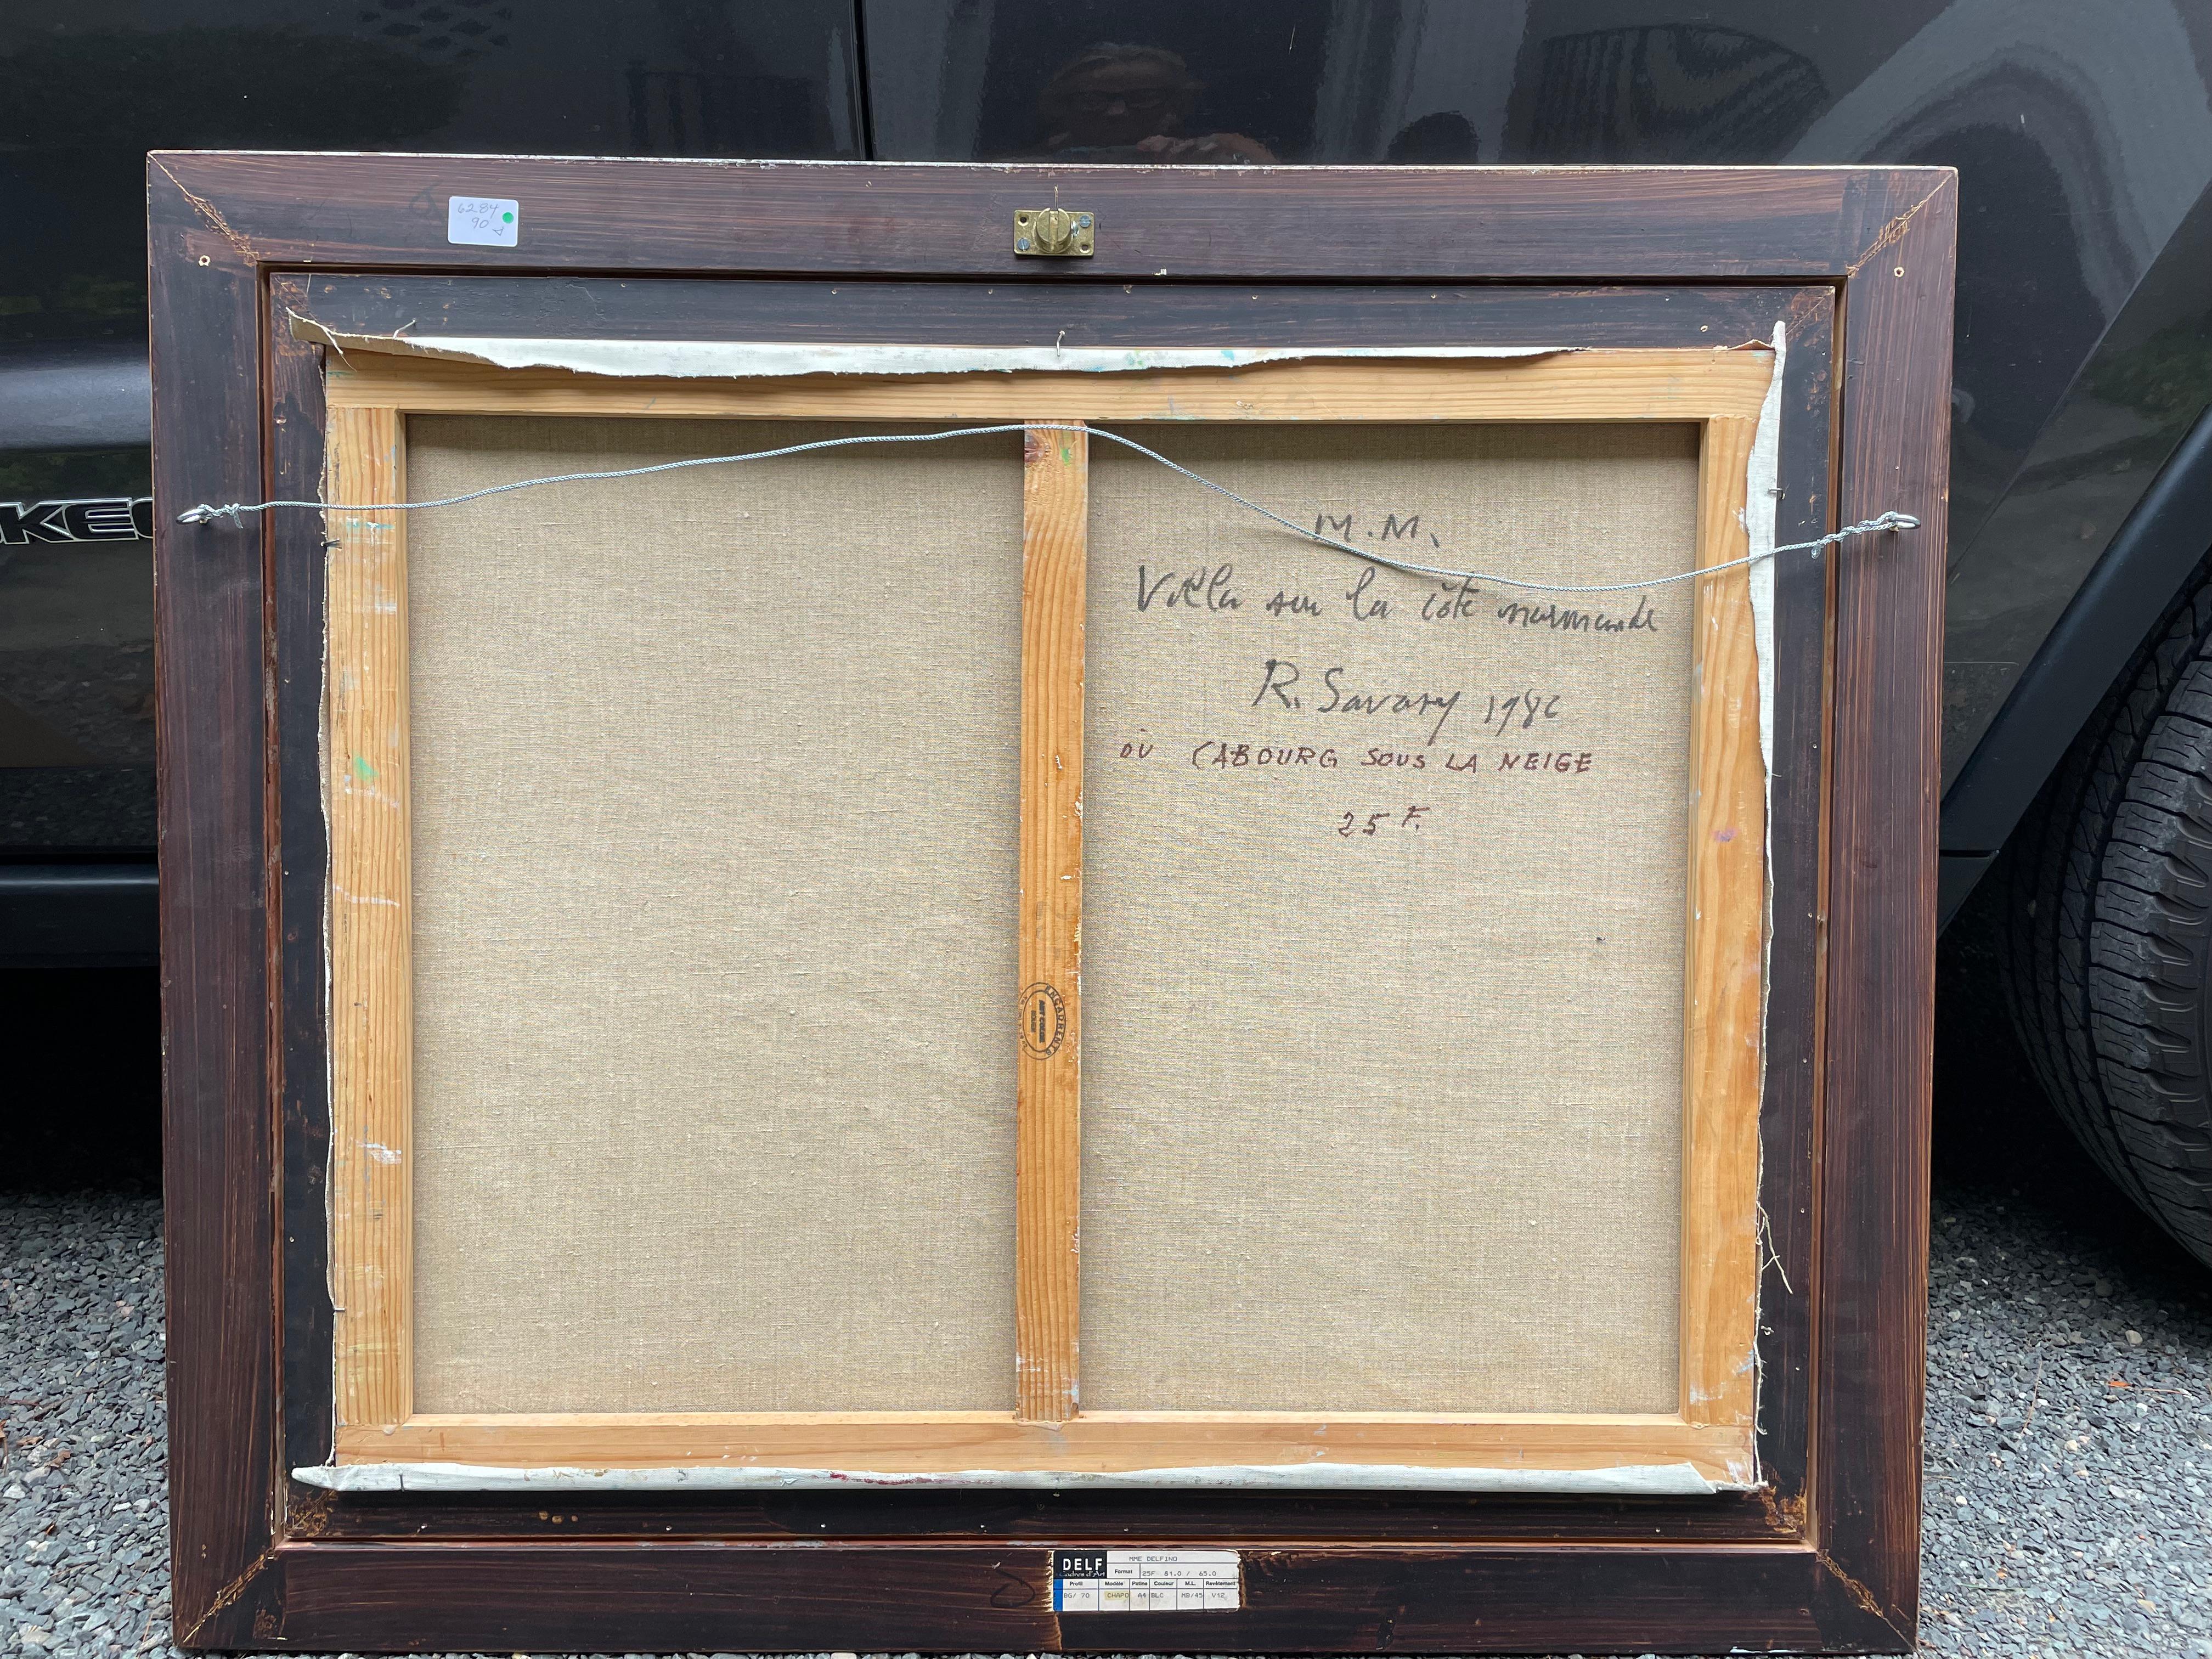 6284
90
KEE
M.M.
Villa sur la côte normande
R. Savary 1986
OÙ CABOURG SOUS LA NEIGE
25 F.
ENCADREMENTS
DELF MME DELFINO
Cadres d'Art Format 25F 81.0 / 65.0
Profil Modèle Patine Couleur M.L. Revêtement
BG/ 70 CHAPO A4 BLC MB/45 V12